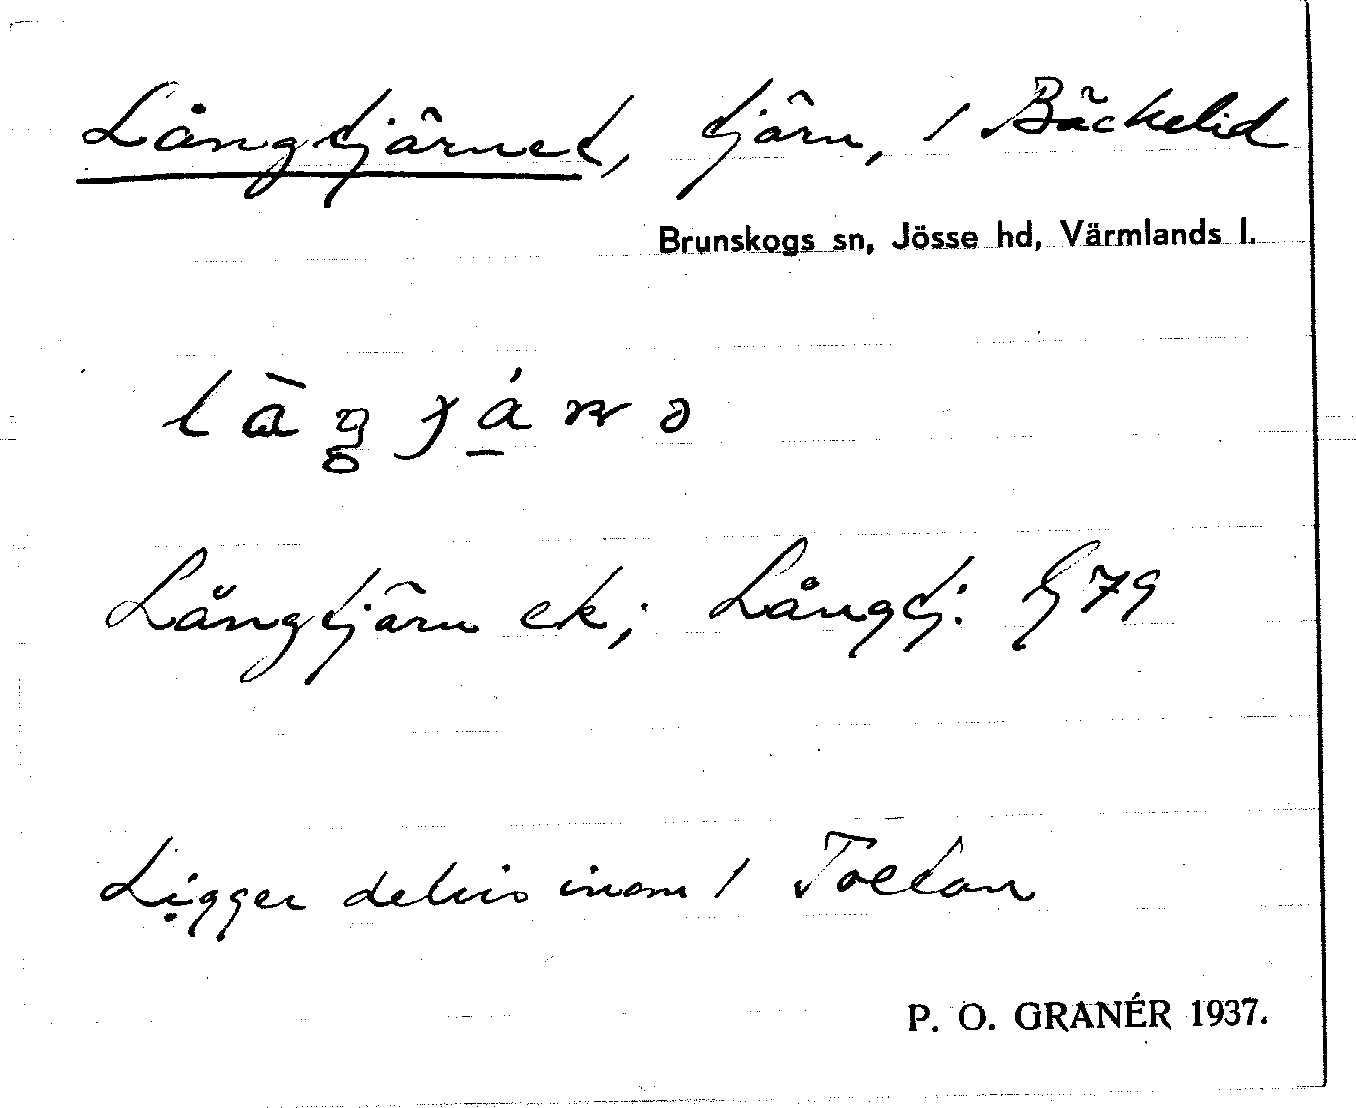 Långtjärnet, tjärn, / Bäckelid
Brunskogs sn, Jösse hd, Värmlands l.
Långtjärn ek; Långtj. G 79
Ligger delvis inom /
P. O. GRANÉR 1937.